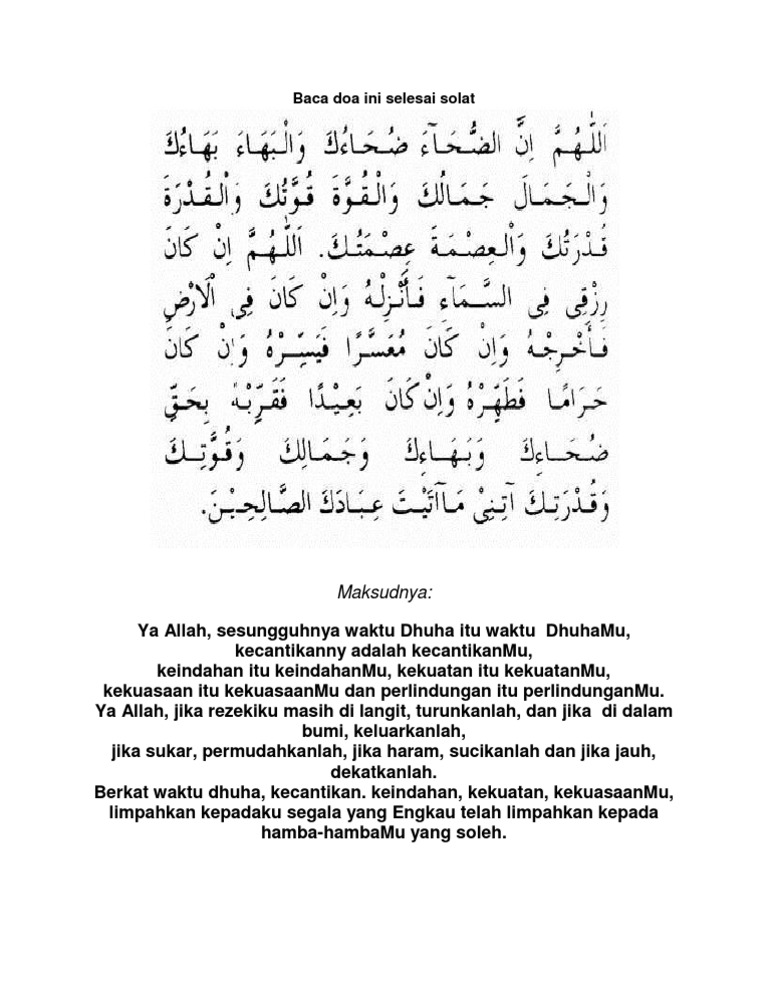 Baca doa ini selesai solat
اَللّٰهُمَّ اِنَّ الضُّحَآءَ ضُحَاءُكَ وَالْبَهَاءَ بَهَاءُكَ
وَالْجَمَالَ جَمَالُكَ وَالْقُوَّةَ قُوَّتُكَ وَالْقُدْرَةَ
قُدْرَتُكَ وَالْعِصْمَةَ عِصْمَتُكَ. اَللّٰهُمَّ اِنْ كَانَ
رِزْقِى فِى السَّمَآءِ فَأَنْزِلْهُ وَاِنْ كَانَ فِى الْاَرْضِ
فَأَخْرِجْهُ وَاِنْ كَانَ مُعَسَّرًا فَيَسِّرْهُ وَاِنْ كَانَ
حَرَامًا فَطَهِّرْهُ وَاِنْ كَانَ بَعِيْدًا فَقَرِّبْهُ بِحَقِّ
ضُحَاءِكَ وَبَهَاءِكَ وَجَمَالِكَ وَقُوَّتِكَ
وَقُدْرَتِكَ آتِنِىْ مَآاَتَيْتَ عِبَادَكَ الصَّالِحِيْنَ.
Maksudnya:
Ya Allah, sesungguhnya waktu Dhuha itu waktu  DhuhaMu,
kecantikanny adalah kecantikanMu,
keindahan itu keindahanMu, kekuatan itu kekuatanMu,
kekuasaan itu kekuasaanMu dan perlindungan itu perlindunganMu.
Ya Allah, jika rezekiku masih di langit, turunkanlah, dan jika  di dalam
bumi, keluarkanlah,
jika sukar, permudahkanlah, jika haram, sucikanlah dan jika jauh,
dekatkanlah.
Berkat waktu dhuha, kecantikan. keindahan, kekuatan, kekuasaanMu,
limpahkan kepadaku segala yang Engkau telah limpahkan kepada
hamba-hambaMu yang soleh.